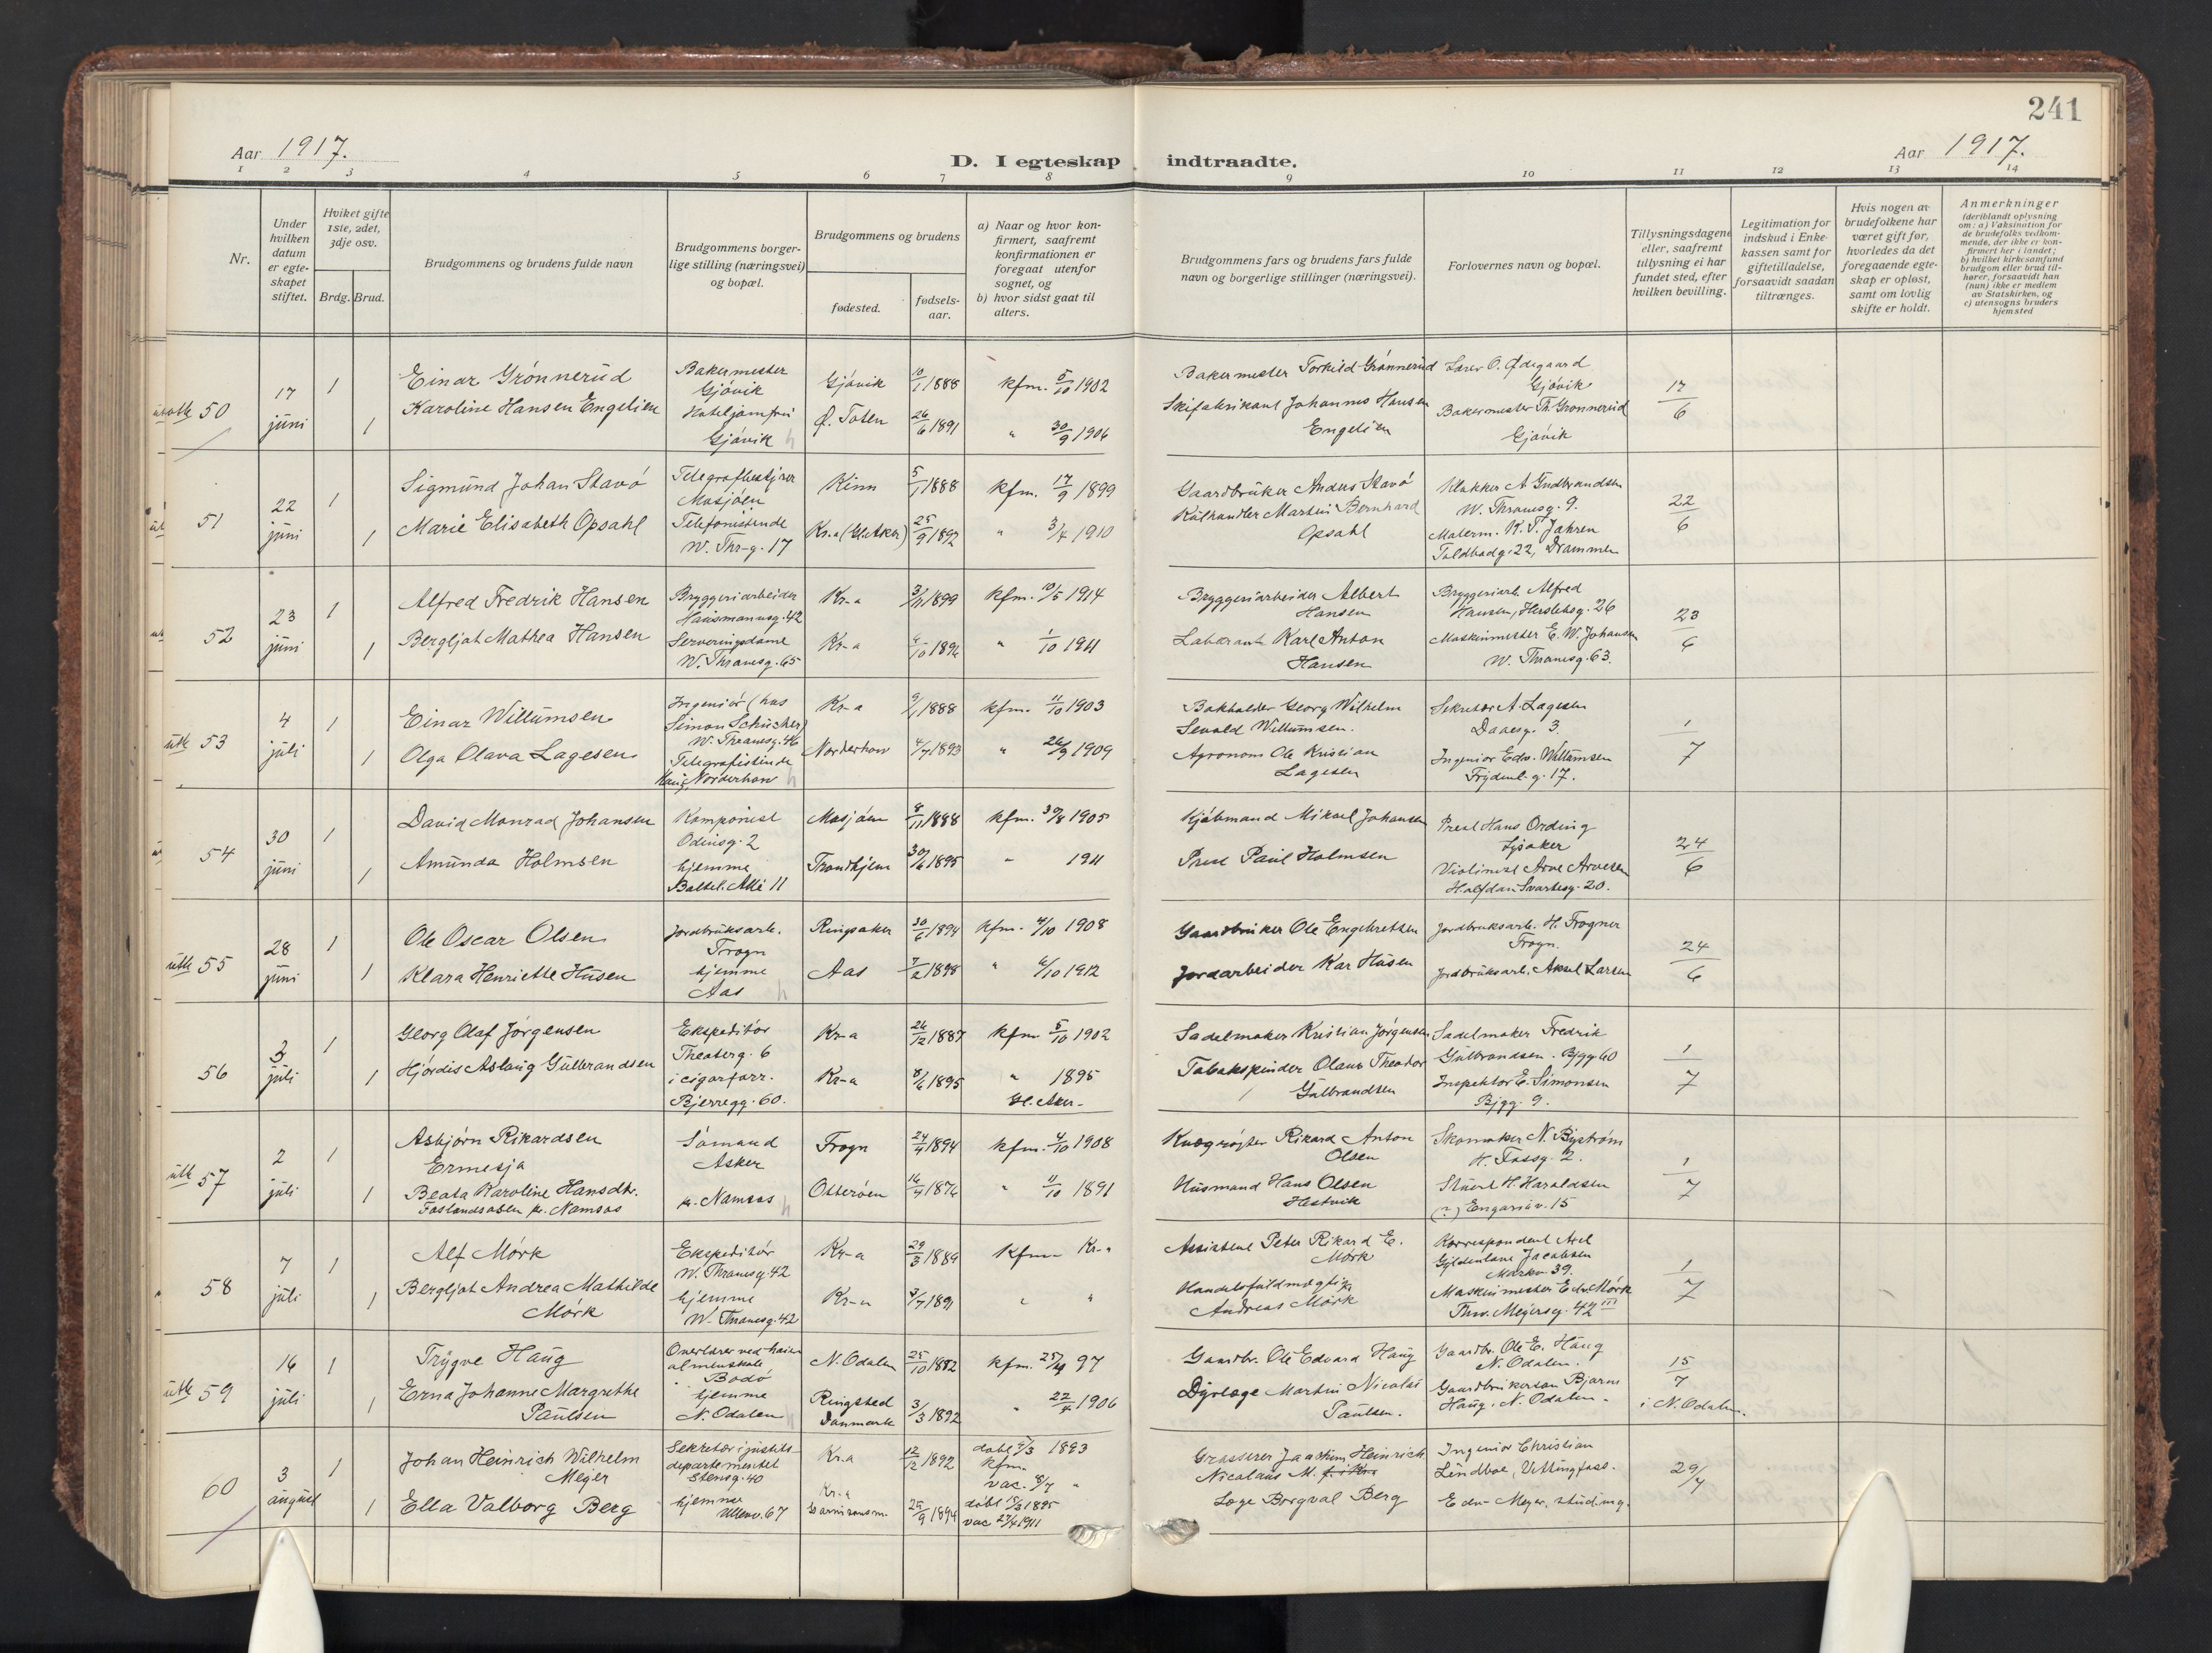 241
Aar 1917.
D. I egteskap indtraadte.
Aar 1917.
1 2 3 4 5 6 7 8 9 10 11 12 13 14
Nr.
Under hvilken datum er egteskapet stiftet.
Hvilket gifte 1ste, 2det, 3dje osv.
Brdg. Brud.
Brudgommens og brudens fulde navn
Brudgommens borgerlige stilling (næringsvei) og bopæl.
Brudgommens og brudens
fødested.
fødsels-aar.
a) Naar og hvor konfirmert, saafremt konfirmationen er foregaat utenfor sognet, og
b) hvor sidst gaat til alters.
Brudgommens fars og brudens fars fulde navn og borgerlige stillinger (næringsvei).
Forlovernes navn og bopæl.
Tillysningsdagene eller, saafremt tillysning ei har fundet sted, efter hvilken bevilling.
Legitimation for indskud i Enkekassen samt for giftetilladelse, forsaavidt saadan tiltrænges.
Hvis nogen av brudefolkene har været gift før, hvorledes da det foregaaende egteskap er opløst, samt om lovlig skifte er holdt.
Anmerkninger (deriblandt oplysning om: a) Vaksination for de brudefolks vedkommende, der ikke er konfirmert her i landet; b) hvilket kirkesamfund brudgom eller brud tilhører, forsaavidt han (hun) ikke er medlem av Statskirken, og c) utensogns bruders hjemsted
utb 50 17 juni 1 Einar Grønnerud Bakermester Gjøvik Gjøvik 10/1 1888 kfm. 5/10 1902 Bakermester Torkild Grønnerud Lærer O. Ødegaard Gjøvik 17/6
1 Karoline Hansen Engelien Hoteljomfru Gjøvik Ø. Toten 26/6 1891 " 30/9 1906 Skifabrikant Johannes Hansen Engelien Bakermester Th. Grønnerud Gjøvik
51 22 juni 1 Sigmund Johan Stavø Telegrafbestyrer Mosjøen Kinn 5/1 1888 kfm. 17/9 1899 Gaardbruker Anders Stavø Klokker A Gudbrandsen W. Thranesg. 9. 22/6
1 Marie Elisabeth Opsahl Telefonistinde W. Thr-g. 17 Kr.a 25/9 1892 " 3/4 1910 Kulhandler Martin Bernhard Opsahl Malerm. K. T. Jahren Toldbodg. 22, Drammen
52 23 juni 1 Alfred Fredrik Hansen Bryggeriarbeider Hausmannsg. 42 Kr-a 3/11 1899 kfm. 10/5 1914 Bryggeriarbeider Albert Hansen Bryggeriarb. Alfred Hansen, Herslebsg. 26 23/6
1 Bergljot Mathea Hansen Serveringsdame W. Thranesg. 65 Kr-a " 1/10 1911 Laborant Karl Anton Hansen Maskinmester E. W. Johansen W. Thranesg. 63.
utb 53 4 juli 1 Einar Willumsen Ingeniør (hos Simon Schücher) W. Thranesg. 46 Kr-a 9/1 1888 kfm. 11/10 1903 Bokholder Georg Wilhelm Sevald Willumsen. Sekretær A. Lagesen Daaesg. 3. 1/7
1 Olga Olava Lagesen Telegrafistinde Haug, Norderhov Norderhov 4/7 1893 " 26/9 1909 Agronom Ole Kristian Lagesen Ingeniør Edv. Willumsen Frydenl. g. 17.
54 30 juni 1 David Monrad Johansen Komponist Odinsg. 2 Mosjøen 8/11 1888 kfm. 30/8 1905 Kjøbmand Mikael Johansen Prest Hans Ording Lysaker 24/6
1 Amunda Holmsen hjemme Balteb. Allé 11 Trondhjem 30/6 1895 " 1911 Prest Paul Holmsen Violinist Arve Arvesen Halfdan Svartesg. 20.
utb 55 28 juni 1 Ole Oscar Olsen Jordbruksarb. Frogn Ringsaker 30/6 1894 kfm. 4/10 1908 Gaardbruker Ole Engebretsen Jordbruksarb. H. Frogner Frogn. 24/6
1 Klara Henriette Husen hjemme Aas Aas 7/2 1898 " 6/10 1912 Jordarbeider Kar Husen Jordbruksarb. Aksel Larsen
56 3 juli 1 Georg Olaf Jørgensen Ekspeditør Theaterg. 6 Kr-a 26/12 1887 kfm 5/10 1902 Sadelmaker Kristian Jørgensen Sadelmaker Fredrik Gulbrandsen. Bjgg. 60 1/7
1 Hjørdis Aslaug Gulbrandsen i cigarforr. Bjerregg. 60. Kr-a 8/6 1895 " 1895 Gl. Aker Tobakspinder Olaus Theodor Gulbrandsen Inspektør E. Simonsen Bjgg. 9.
utb 57 2 juli 1 Asbjørn Rikardsen Ermesja Sømand Asker Frogn 24/4 1894 kfm. 4/10 1908 Rikard Anton Olsen Skomaker N. Byström H. Fossg. 2. 1/7
1 Beata Karoline Hansdtr. Foslandsosen pr. Namsos pr. Namsos Otterøen 16/7 1876 " 11/10 1891 Husmand Hans Olsen Hestvik Stuert H. Haraldsen (?) Engaviav. 15
58 7 juli 1 Alf Mørk Ekspeditør W. Thranesg. 42 Kr-a 29/3 1889 kfm. Kr-a Assistent Peter Rikard E. Mørk Korrespondent Axel Gyldenløve Jacobsen Markv. 39. 1/7
1 Bergljot Andrea Mathilde Mørk hjemme W. Thranesg. 42 Kr-a 3/7 1891 " " Handelsfuldmægtig Andreas Mørk Maskinmester Edv. Mørk Thv. Meyersg. 42 III
utb 59 16 juli 1 Trygve Haug Overlærer ved høiere almenskole Bodø N. Odalen 25/10 1882 kfm. 25/4 97 Gaardbr. Ole Edvard Haug Gaardbr. Ole E. Haug N. Odalen. 15/7 i N. Odalen.
1 Erna Johanne Margrethe Paulsen hjemme N. Odalen Ringsted Danmark 3/3 1892 " 22/4 1906 Dyrlæge Martin Nicolai Paulsen. Gaardbrukersøn Bjarne Haug. N. Odalen.
60 3 august 1 Johan Heinrich Wilhelm Meyer Sekretær i justitsdepartementet Stensg. 40 Kr.a 12/12 1892 døbt 5/3 1893 kfm. vac. 8/7 " Grosserer Joachim Heinrich Nicolaus M. Ingeniør Christian Lindboe, Vettingfoss. 29/7
1 Ella Valborg Berg hjemme Ullevv. 67 Kr.a Garnisonsm. 25/9 1894 døbt 1895 vac 27/4 1911 Læge Borgval Berg Edv. Meyer, stud.mg.